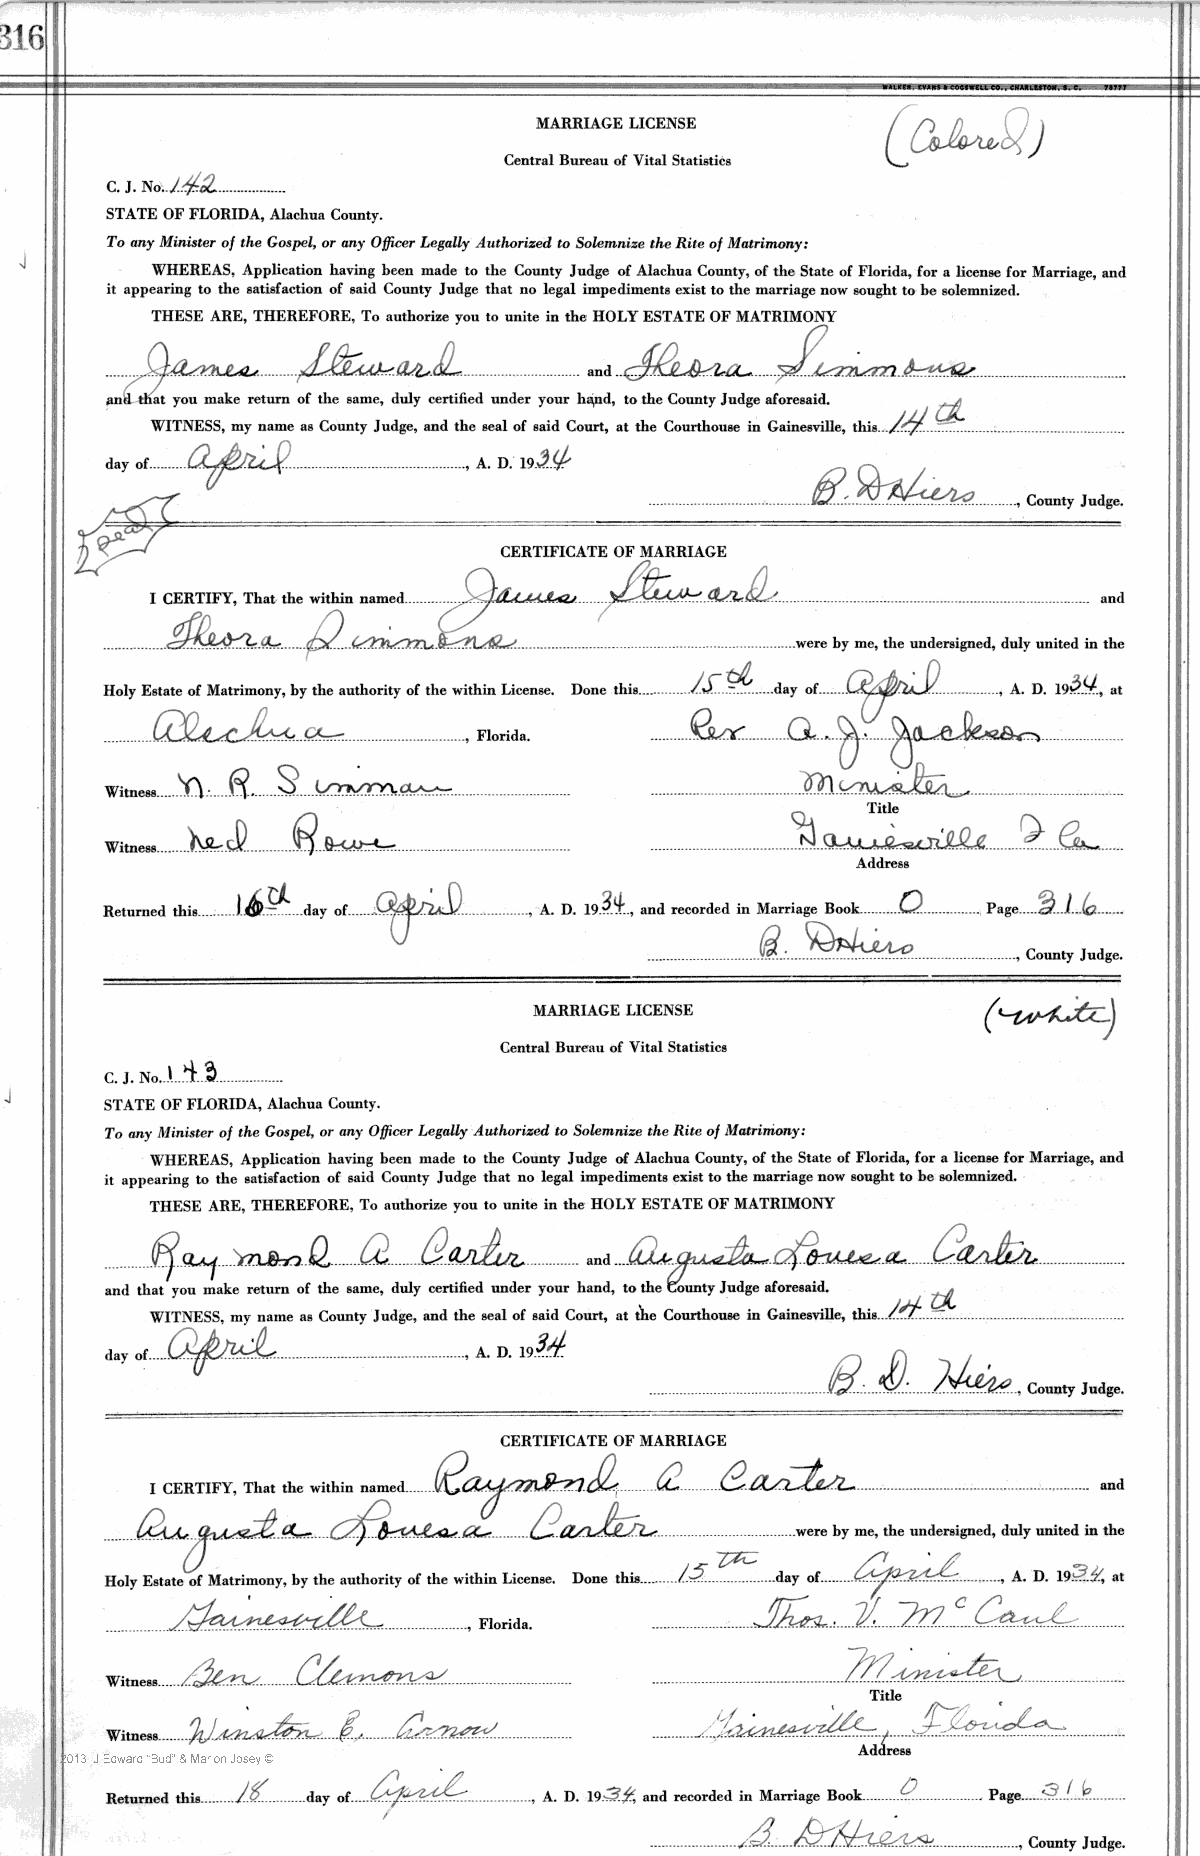 316
WALKER, EVANS & COGSWELL CO., CHARLESTON, S. C. 78777
MARRIAGE LICENSE
(Colored)
Central Bureau of Vital Statistics
C. J. No. 142
STATE OF FLORIDA, Alachua County.
To any Minister of the Gospel, or any Officer Legally Authorized to Solemnize the Rite of Matrimony:
WHEREAS, Application having been made to the County Judge of Alachua County, of the State of Florida, for a license for Marriage, and
it appearing to the satisfaction of said County Judge that no legal impediments exist to the marriage now sought to be solemnized.
THESE ARE, THEREFORE, To authorize you to unite in the HOLY ESTATE OF MATRIMONY
James Steward and Theora Simmons
and that you make return of the same, duly certified under your hand, to the County Judge aforesaid.
WITNESS, my name as County Judge, and the seal of said Court, at the Courthouse in Gainesville, this 14th
day of April, A. D. 1934
B. D Hiers, County Judge.
Seal
CERTIFICATE OF MARRIAGE
I CERTIFY, That the within named James Steward and
Theora Simmons were by me, the undersigned, duly united in the
Holy Estate of Matrimony, by the authority of the within License. Done this 15th day of April, A. D. 1934, at
Alachua, Florida. Rev A. J. Jackson
Witness N. R. Simman Minister
Title
Witness Ned Rowe Gainesville Fla
Address
Returned this 16th day of April, A. D. 1934, and recorded in Marriage Book O Page 316
B. D Hiers, County Judge.
MARRIAGE LICENSE
(White)
Central Bureau of Vital Statistics
C. J. No. 143
STATE OF FLORIDA, Alachua County.
To any Minister of the Gospel, or any Officer Legally Authorized to Solemnize the Rite of Matrimony:
WHEREAS, Application having been made to the County Judge of Alachua County, of the State of Florida, for a license for Marriage, and
it appearing to the satisfaction of said County Judge that no legal impediments exist to the marriage now sought to be solemnized.
THESE ARE, THEREFORE, To authorize you to unite in the HOLY ESTATE OF MATRIMONY
Raymond A Carter and Augusta Louesa Carter
and that you make return of the same, duly certified under your hand, to the County Judge aforesaid.
WITNESS, my name as County Judge, and the seal of said Court, at the Courthouse in Gainesville, this 14th
day of April, A. D. 1934
B. D. Hiers, County Judge.
CERTIFICATE OF MARRIAGE
I CERTIFY, That the within named Raymond A Carter and
Augusta Louesa Carter were by me, the undersigned, duly united in the
Holy Estate of Matrimony, by the authority of the within License. Done this 15th day of April, A. D. 1934, at
Gainesville, Florida. Thos. V. McCaul
Witness Ben Clemons Minister
Title
Witness Winston E. Arnow Gainesville, Florida
Address
2013 J Edward "Bud" & Marion Josey ©
Returned this 18 day of April, A. D. 1934, and recorded in Marriage Book O Page 316
B. D Hiers, County Judge.